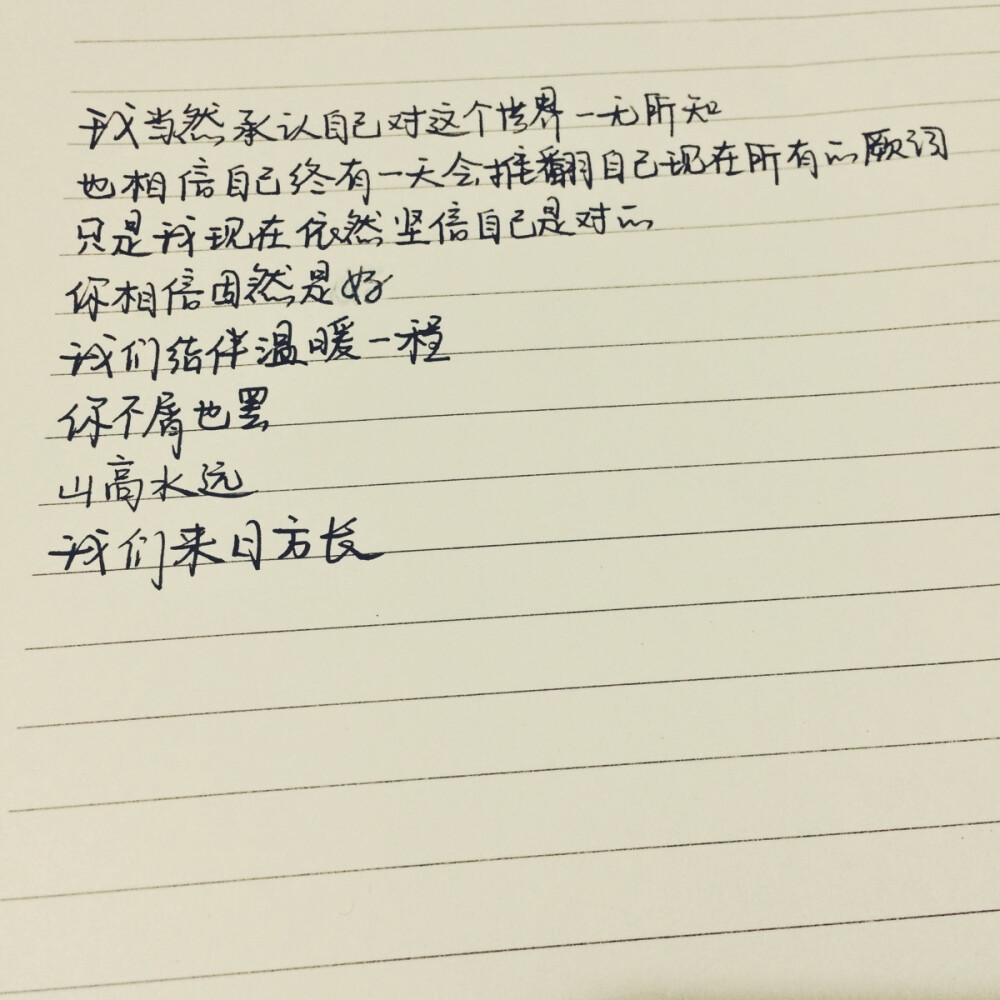 我当然承认自己对这个世界一无所知
也相信自己终有一天会推翻自己现在所有的颐词
只是我现在依然坚信自己是对的
你相信固然是好
我们结伴温暖一程
你不屑也罢
山高水远
我们来日方长